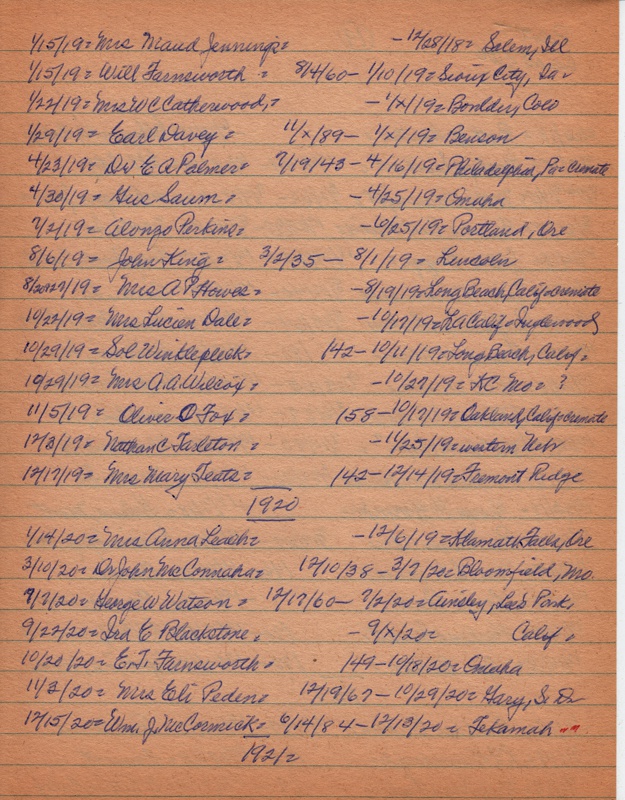 1/15/19= Mrs Maud Jennings= -12/28/18= Salem, Ill
1/15/19= Will Farnsworth = 8/4/60- 1/10/19= Sioux City, Ia=
1/22/19= Mrs W C Catherwood,= -1/X/19= Boulder, Colo
1/29/19= Earl Davey= 11/X/89- 1/X/19= Benson
4/23/19= Dr E A Palmer= 7/19/43- 4/16/19= Philadelphia, Pa= cremate
4/30/19= Gus Saum= -4/25/19= Omaha
7/2/19= Alonzo Perkins= -6/25/19= Portland, Ore
8/6/19= John King= 3/2/35- 8/1/19= Lincoln
8/20&27/19= Mrs A P Howes= -8/19/19= Long Beach, Calif= cremate
10/22/19= Mrs Lucien Dale= -10/17/19= LA Calif= Inglewood
10/29/19= Sol Winklepleck= 142- 10/11/19= Long Beach, Calif=
10/29/19= Mrs A.A. Wilcox= -10/27/19= KC Mo= ?
11/5/19= Oliver O Fox= 158- 10/17/19= Oakland, Calif= cremate
12/3/19= Nathan C Tarleton= -11/25/19= western Nebr
12/17/19= Mrs Mary Teats= 142- 12/14/19= Fremont Ridge
1920
1/14/20= Mrs Anna Leach= -12/6/19= Klamath Falls, Ore
3/10/20= Dr John McConnaha= 12/10/38- 3/7/20= Bloomfield, Mo.
7/7/20= George W Watson= 12/17/60- 7/2/20= Ainsley, Lee's Park,
9/22/20= Ira E Blackstone= -9/X/20= Calif=
10/20/20= E.T. Farnsworth= 149- 10/18/20= Omaha
11/2/20= Mrs Eli Peden= 12/19/67- 10/29/20= Gary, S. D=
12/15/20= Wm. J. McCormick= 6/14/84- 12/13/20= Tekamah ""
1921=